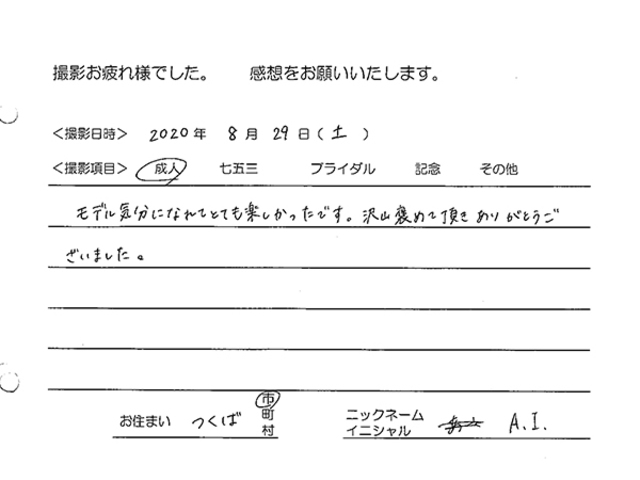 撮影お疲れ様でした。　感想をお願いいたします。
<撮影日時> 2020年 8月 29日(土)
<撮影項目> 成人 七五三 ブライダル 記念 その他
モデル気分になれてとても楽しかったです。沢山褒めて頂きありがとうご
ざいました。
お住まい つくば 市
町
村
ニックネーム
イニシャル A.I.